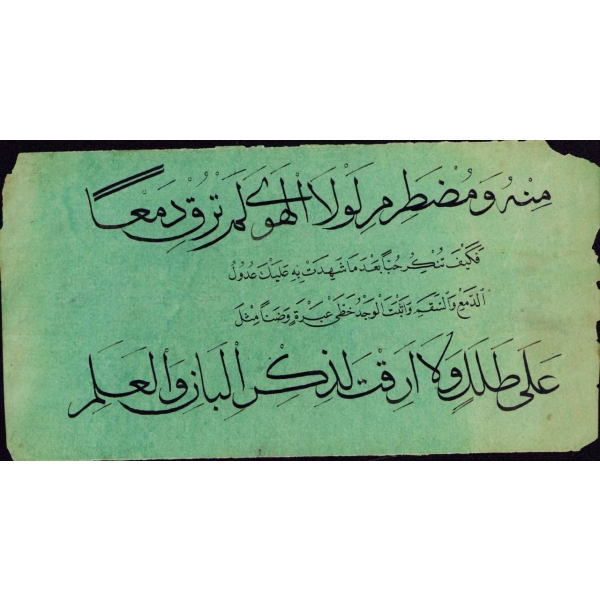 مِنْهُ وَمُضْطَرِمِ لَوْلَا الْهَوَى لَمْ تُرِقْ دَمْعًا
فَكَيْفَ تُنْكِرُ حُبًّا بَعْدَ مَا شَهِدَتْ بِهِ عَلَيْكَ عُدُولُ
الدَّمْعِ وَالسَّقَمِ وَاَثْبَتَ الْوَجْدُ خَطَّىْ عَبْرَةٍ وَضَنًا مِثْلَ
عَلَى طَلَلٍ وَلَا اَرِقْتَ لِذِكْرِ الْبَانِ وَالْعَلَمِ